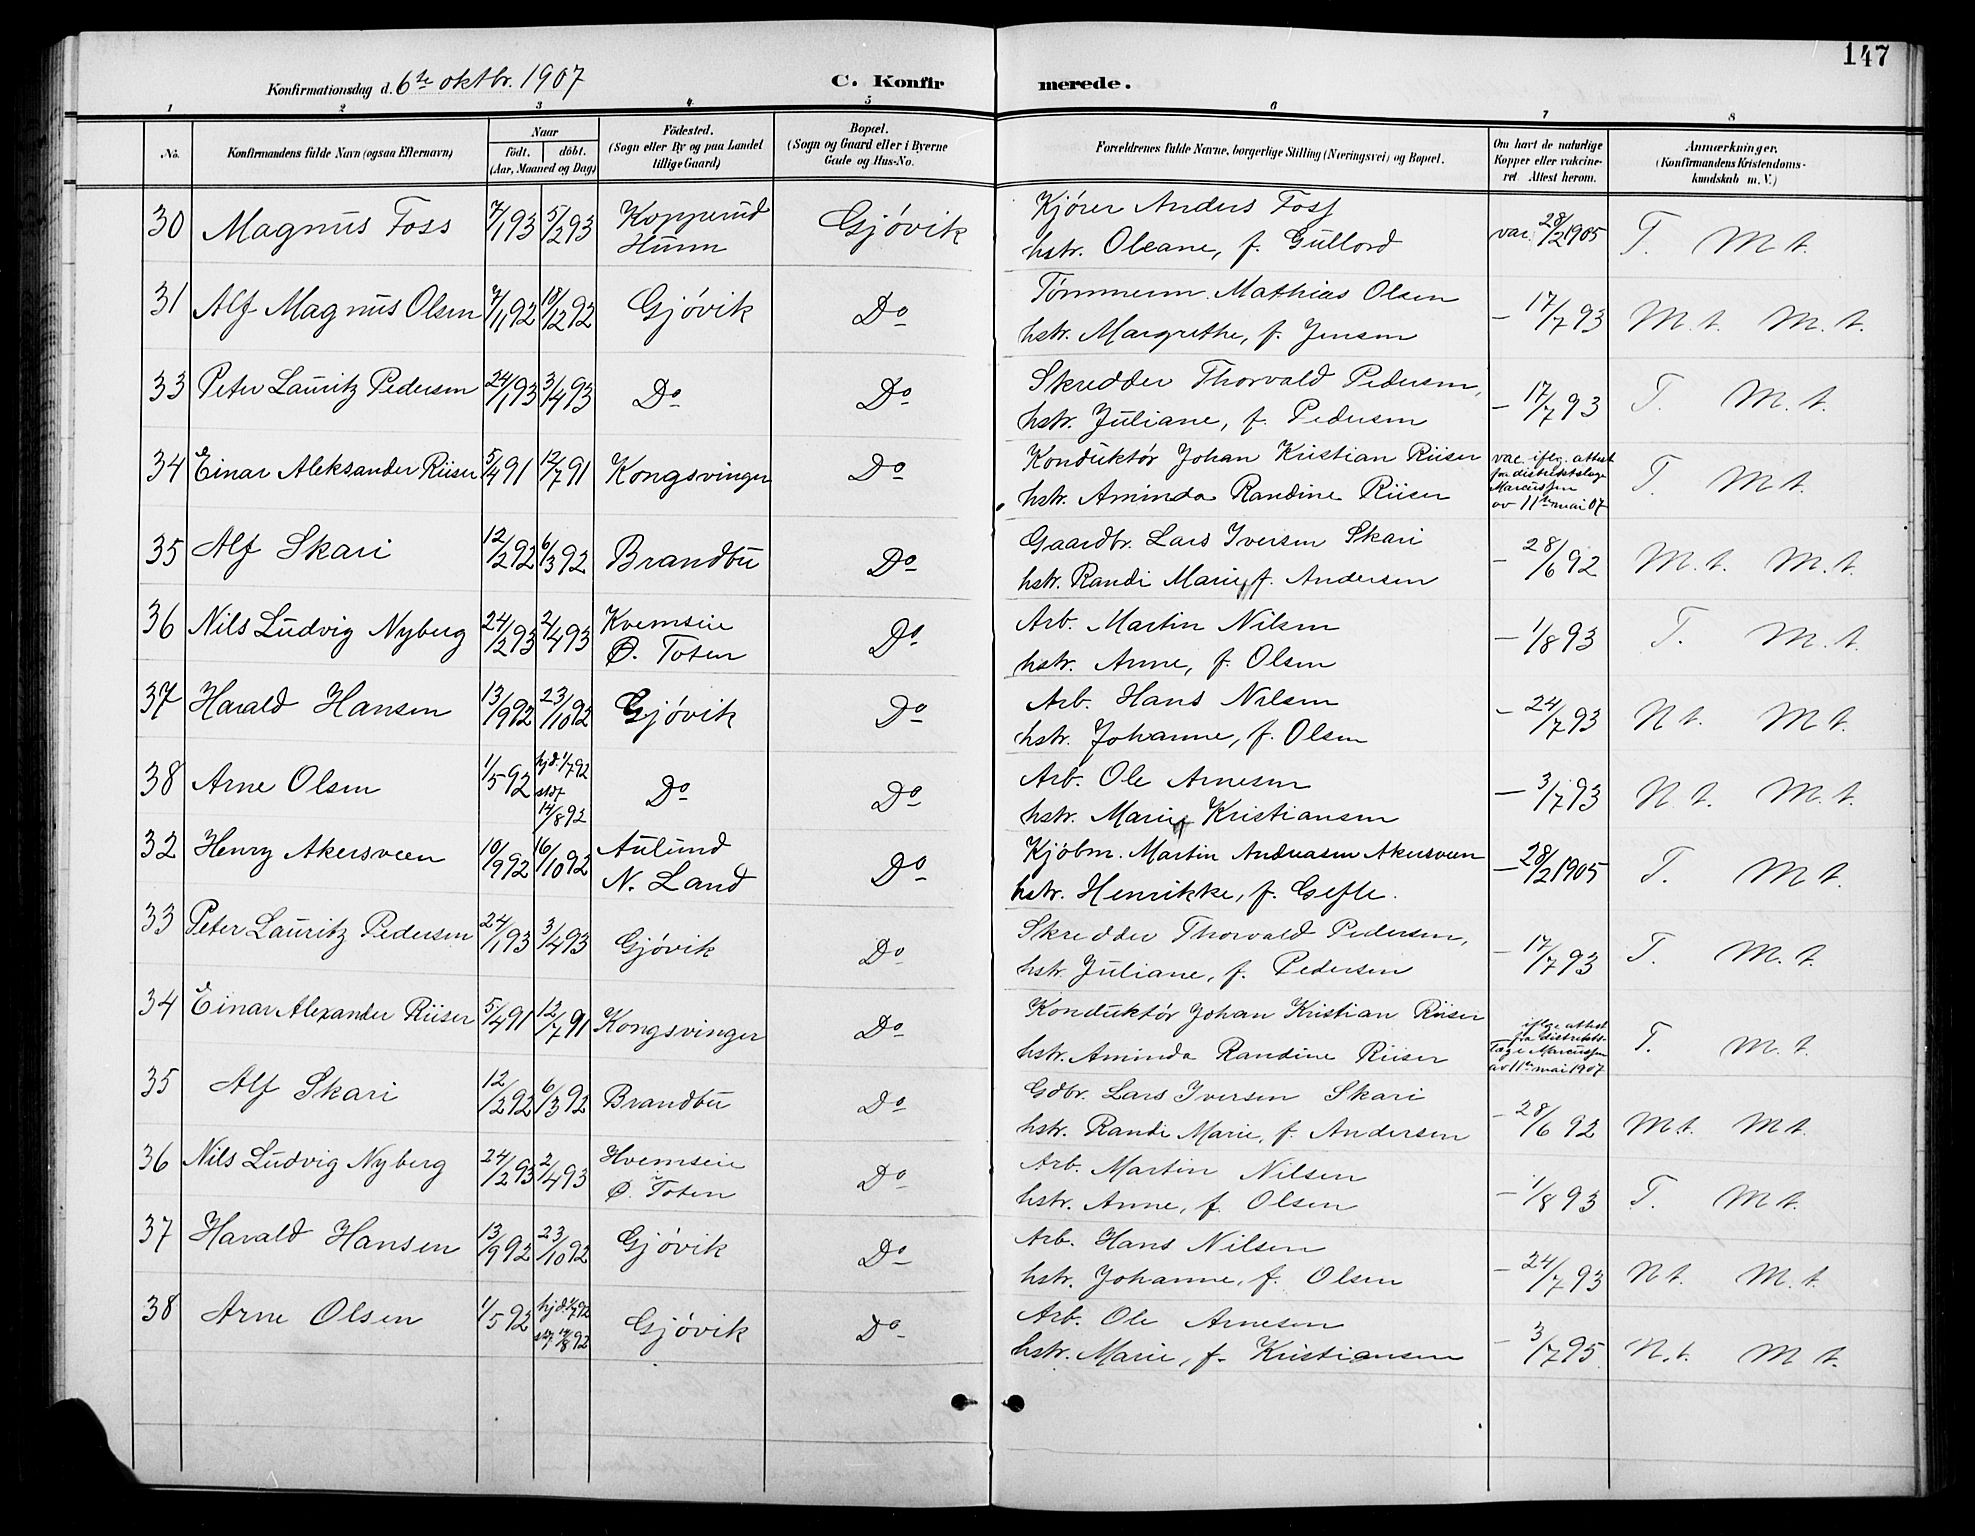 147
Konfirmationsdag d. 6te oktbr. 1907 C. Konfirmerede.
1 2 3 4 5 6 7 8
No. Konfirmandens fulde Navn (ogsaa Efternavn) Naar födt. döbt. (Aar, Maaned og Dag) Födested. (Sogn eller By og paa Landet tillige Gaard) Bopæl. (Sogn og Gaard eller i Byerne Gade og Hus-No. Forældrenes fulde Navne, borgerlige Stilling (Næringsvei) og Bopæl. Om havt de naturlige Kopper eller vakcineret. Attest herom. Anmærkninger, (Konfirmandens Kristendomskundskab m. V.)
30 Magnus Foss 7/1 93 5/2 93 Kopperud Hunn Gjövik Kjörer Anders Foss vac. 28/2 1905 T. M t.
hstr. Oleane, f. Gullord
31 Alf Magnus Olsen 7/11 92 18/12 92 Gjövik Do Tömmerm. Mathias Olsen – 17/7 93 M. t. M. t.
hstr. Margrethe, f. Jensen
33 Peter Lauritz Pedersen 24/1 93 3/4 93 Do Do Skredder Thorvald Pedersen, – 17/7 93 T. M. t.
hstr. Juliane, f. Pedersen
34 Einar Aleksander Riiser 5/4 91 12/7 91 Kongsvinger Do Konduktör Johan Kristian Riiser vac. iflg. attest fra distriktslæge Marcussen av 11te mai 07 T. M t.
hstr. Aminda Randine Riiser
35 Alf Skari 12/2 92 6/3 92 Brandbu Do Gaardbr. Lars Iversen Skari – 28/6 92 M. t. M. t.
hstr. Randi Marie, f. Andersen
36 Nils Ludvig Nyberg 24/2 93 2/4 93 Kvemseie Ö. Toten Do Arb. Martin Nilsen – 1/8 93 T. M. t.
hstr. Anne, f. Olsen
37 Harald Hansen 13/9 92 23/10 92 Gjövik Do Arb. Hans Nilsen – 24/7 93 N t. M t.
hstr. Johanne, f. Olsen
38 Arne Olsen 1/5 92 hjd. 1/7 92 stdf 14/8 92 Do Do Arb. Ole Arnesen – 3/7 93 N. t. M. t.
hstr. Marie Kristiansen
32 Henry Akersveen 10/9 92 16/10 92 Aulund N. Land Do Kjöbm. Martin Andreasen Akersveen – 28/2 1905 T. M t.
hstr. Henrikke, f. Gefle.
33 Peter Lauritz Pedersen 24/1 93 3/4 93 Gjövik Do Skredder Thorvald Pedersen, – 17/7 93 T. M. t.
hstr. Juliane, f. Pedersen
34 Einar Alexander Riiser 5/4 91 12/7 91 Kongsvinger Do Konduktör Johan Kristian Riiser iflge attest fra distriktslæge Marcussen av 11te mai 1907 T. M. t.
hstr. Aminda Randine Riiser
35 Alf Skari 12/2 92 6/3 92 Brandbu Do Gdbr. Lars Iversen Skari – 28/6 92 M t. M t.
hstr. Randi Marie, f. Andersen
36 Nils Ludvig Nyberg 24/2 93 2/4 93 Hvemseie Ö. Toten Do Arb. Martin Nilsen – 1/8 93 T. M t.
hstr. Anne, f. Olsen
37 Harald Hansen 13/9 92 23/10 92 Gjövik Do Arb. Hans Nilsen – 24/7 93 N t. M. t.
hstr. Johanne, f. Olsen
38 Arne Olsen 1/5 92 hjd. 1/7 92 14/8 92 Gjövik Do Arb. Ole Arnesen – 3/7 95 N. t. M t.
hstr. Marie, f. Kristiansen